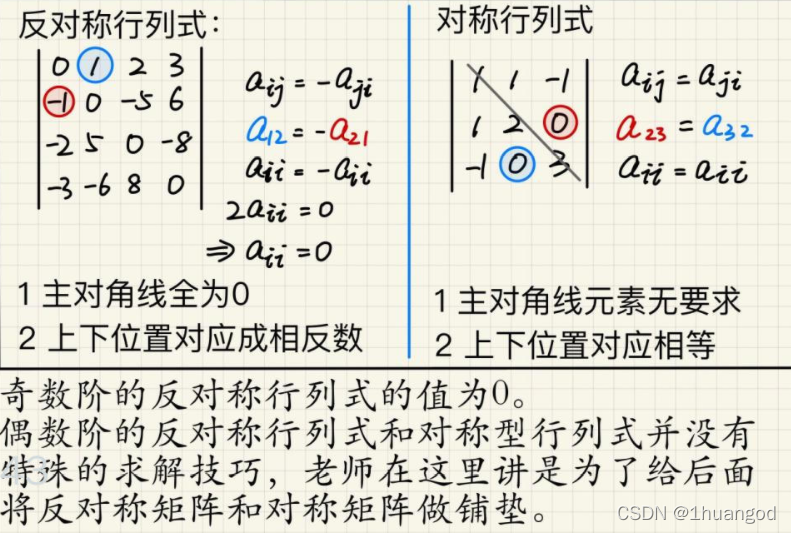 反对称行列式：
0 1 2 3
-1 0 -5 6
-2 5 0 -8
-3 -6 8 0
aij = -aji
a12 = -a21
aii = -aii
2aii = 0
⇒ aii = 0
1 主对角线全为0
2 上下位置对应成相反数
对称行列式
1 1 -1
1 2 0
-1 0 3
aij = aji
a23 = a32
aii = aii
1 主对角线元素无要求
2 上下位置对应相等
奇数阶的反对称行列式的值为0。
偶数阶的反对称行列式和对称型行列式并没有
特殊的求解技巧，老师在这里讲是为了给后面
将反对称矩阵和对称矩阵做铺垫。
CSDN @1huangod